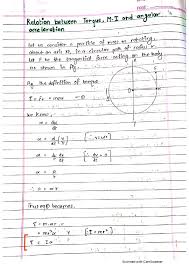 Relation between Torque, M.I and angular
acceleration
Let us consider a particle of mass m rotating
about an axis O, in a circular path of radius r.
Let F be the tangential force acting on the body
as shown in fig.
By the definition of torque
τ = Fr = mar
we know,
α = dω/dt
α = d/dt (v/r) [∵ v = ωr]
α = 1/r dv/dt
α = a/r
Thus becomes,
τ = m.ar
= mr²α [I = mr²]
τ = Iα
Scanned with CamScanner